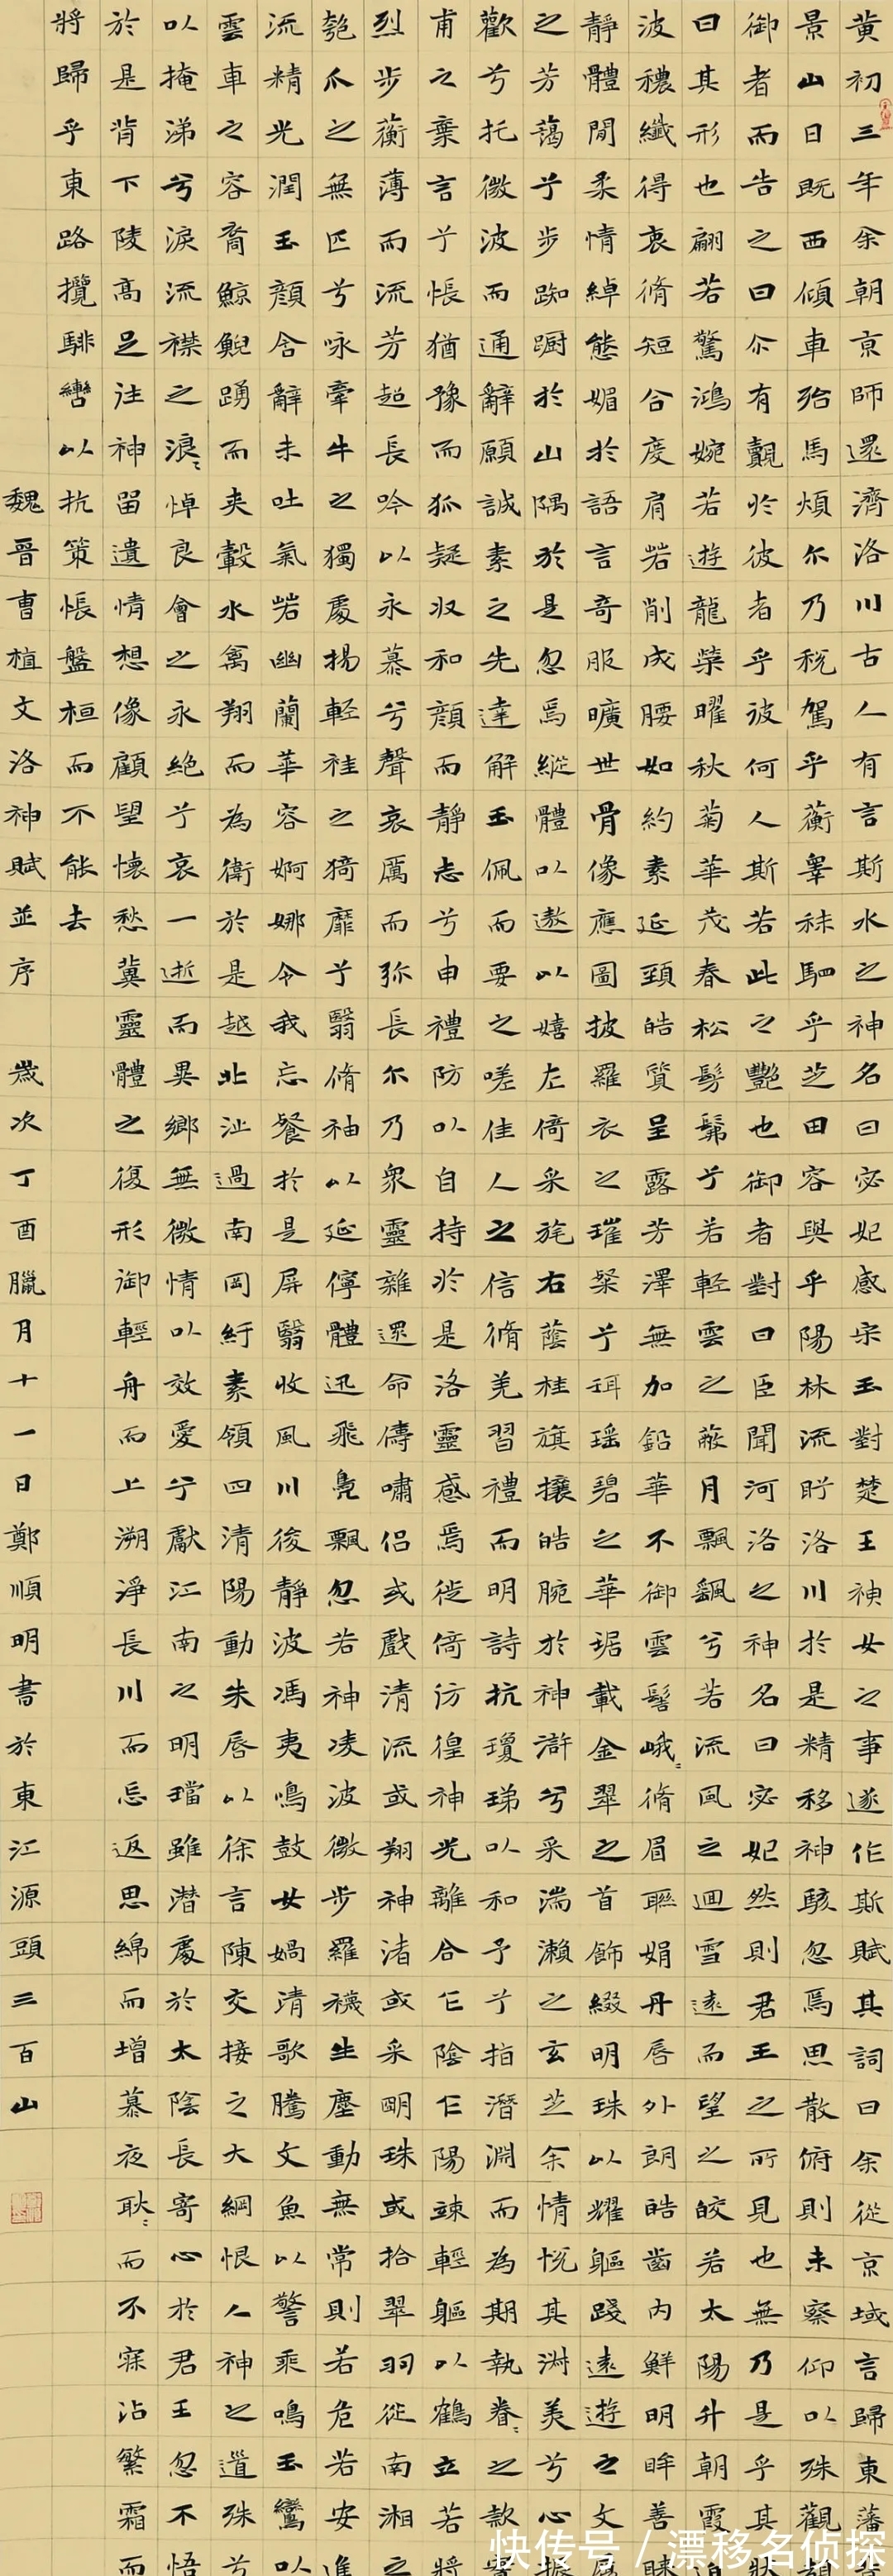 黄初三年余朝京師還濟洛川古人有言斯水之神名曰宓妃感宋玉對楚王神女之事遂作斯賦其詞曰余從京域言歸東藩
景山日既西傾車殆馬煩尓乃税駕乎蘅皋秣駟乎芝田容與乎陽林流眄洛川於是精移神駭忽焉思散俯則未察仰以殊觀
御者而告之曰尓有覿於彼者乎彼何人斯若此之艷也御者對曰臣聞河洛之神名曰宓妃然則君王之所見也無乃是乎其狀
曰其形也翩若驚鴻婉若遊龍榮曜秋菊華茂春松髣髴兮若輕雲之蔽月飄飖兮若流風之迴雪遠而望之皎若太陽升朝霞迫
波穠纖得衷脩短合度肩若削成腰如約素延頸皓質呈露芳澤無加鉛華不御雲髻峨〻脩眉聯娟丹唇外朗皓齒内鮮明眸善睐
靜體閒柔情綽態媚於語言奇服曠世骨像應圖披羅衣之璀粲兮珥瑶碧之華琚載金翠之首飾綴明珠以耀軀踐遠遊之文履
之芳藹兮步踟蹰於山隅於是忽焉縱體以遨以嬉左倚采旄右蔭桂旗攘皓腕於神滸兮采湍瀬之玄芝余情悦其淑美兮心振
歡兮托微波而通辭願誠素之先達解玉佩而要之嗟佳人之信脩羌習禮而明詩抗瓊珶以和予兮指潛淵而為期執眷〻之款實
甫之棄言兮悵猶豫而狐疑收和顔而靜志兮申禮防以自持於是洛靈感焉徙倚彷徨神光離合乍陰乍陽竦輕軀以鶴立若將
烈步蘅薄而流芳超長吟以永慕兮聲哀厲而弥長尓乃衆靈雜遝命儔嘯侣或戲清流或翔神渚或采明珠或拾翠羽從南湘之
匏瓜之無匹兮咏牽牛之獨處揚輕袿之猗靡兮翳脩袖以延佇體迅飛鳧飄忽若神凌波微步羅襪生塵動無常則若危若安進
流精光潤玉顔含辭未吐氣若幽蘭華容婀娜令我忘餐於是屏翳收風川後靜波馮夷鳴鼓女媧清歌騰文魚以警乘鳴玉鸞以
雲車之容裔鯨鯢踴而夾轂水禽翔而為衛於是越北沚過南岡紆素領回清陽動朱唇以徐言陳交接之大綱恨人神之道殊兮
以掩涕兮淚流襟之浪〻悼良會之永絶兮哀一逝而異鄉無微情以效愛兮獻江南之明璫雖潜處於太陰長寄心於君王忽不悟
於是背下陵高足往神留遺情想像顧望懷愁冀靈體之復形御輕舟而上溯淨長川而忘返思綿而增慕夜耿〻而不寐沾繁霜而
將歸乎東路攬騑轡以抗策悵盤桓而不能去
魏晉曹植文洛神賦並序 歲次丁酉臘月十一日鄭順明書於東江源頭三百山
快传号 / 漂移名侦探